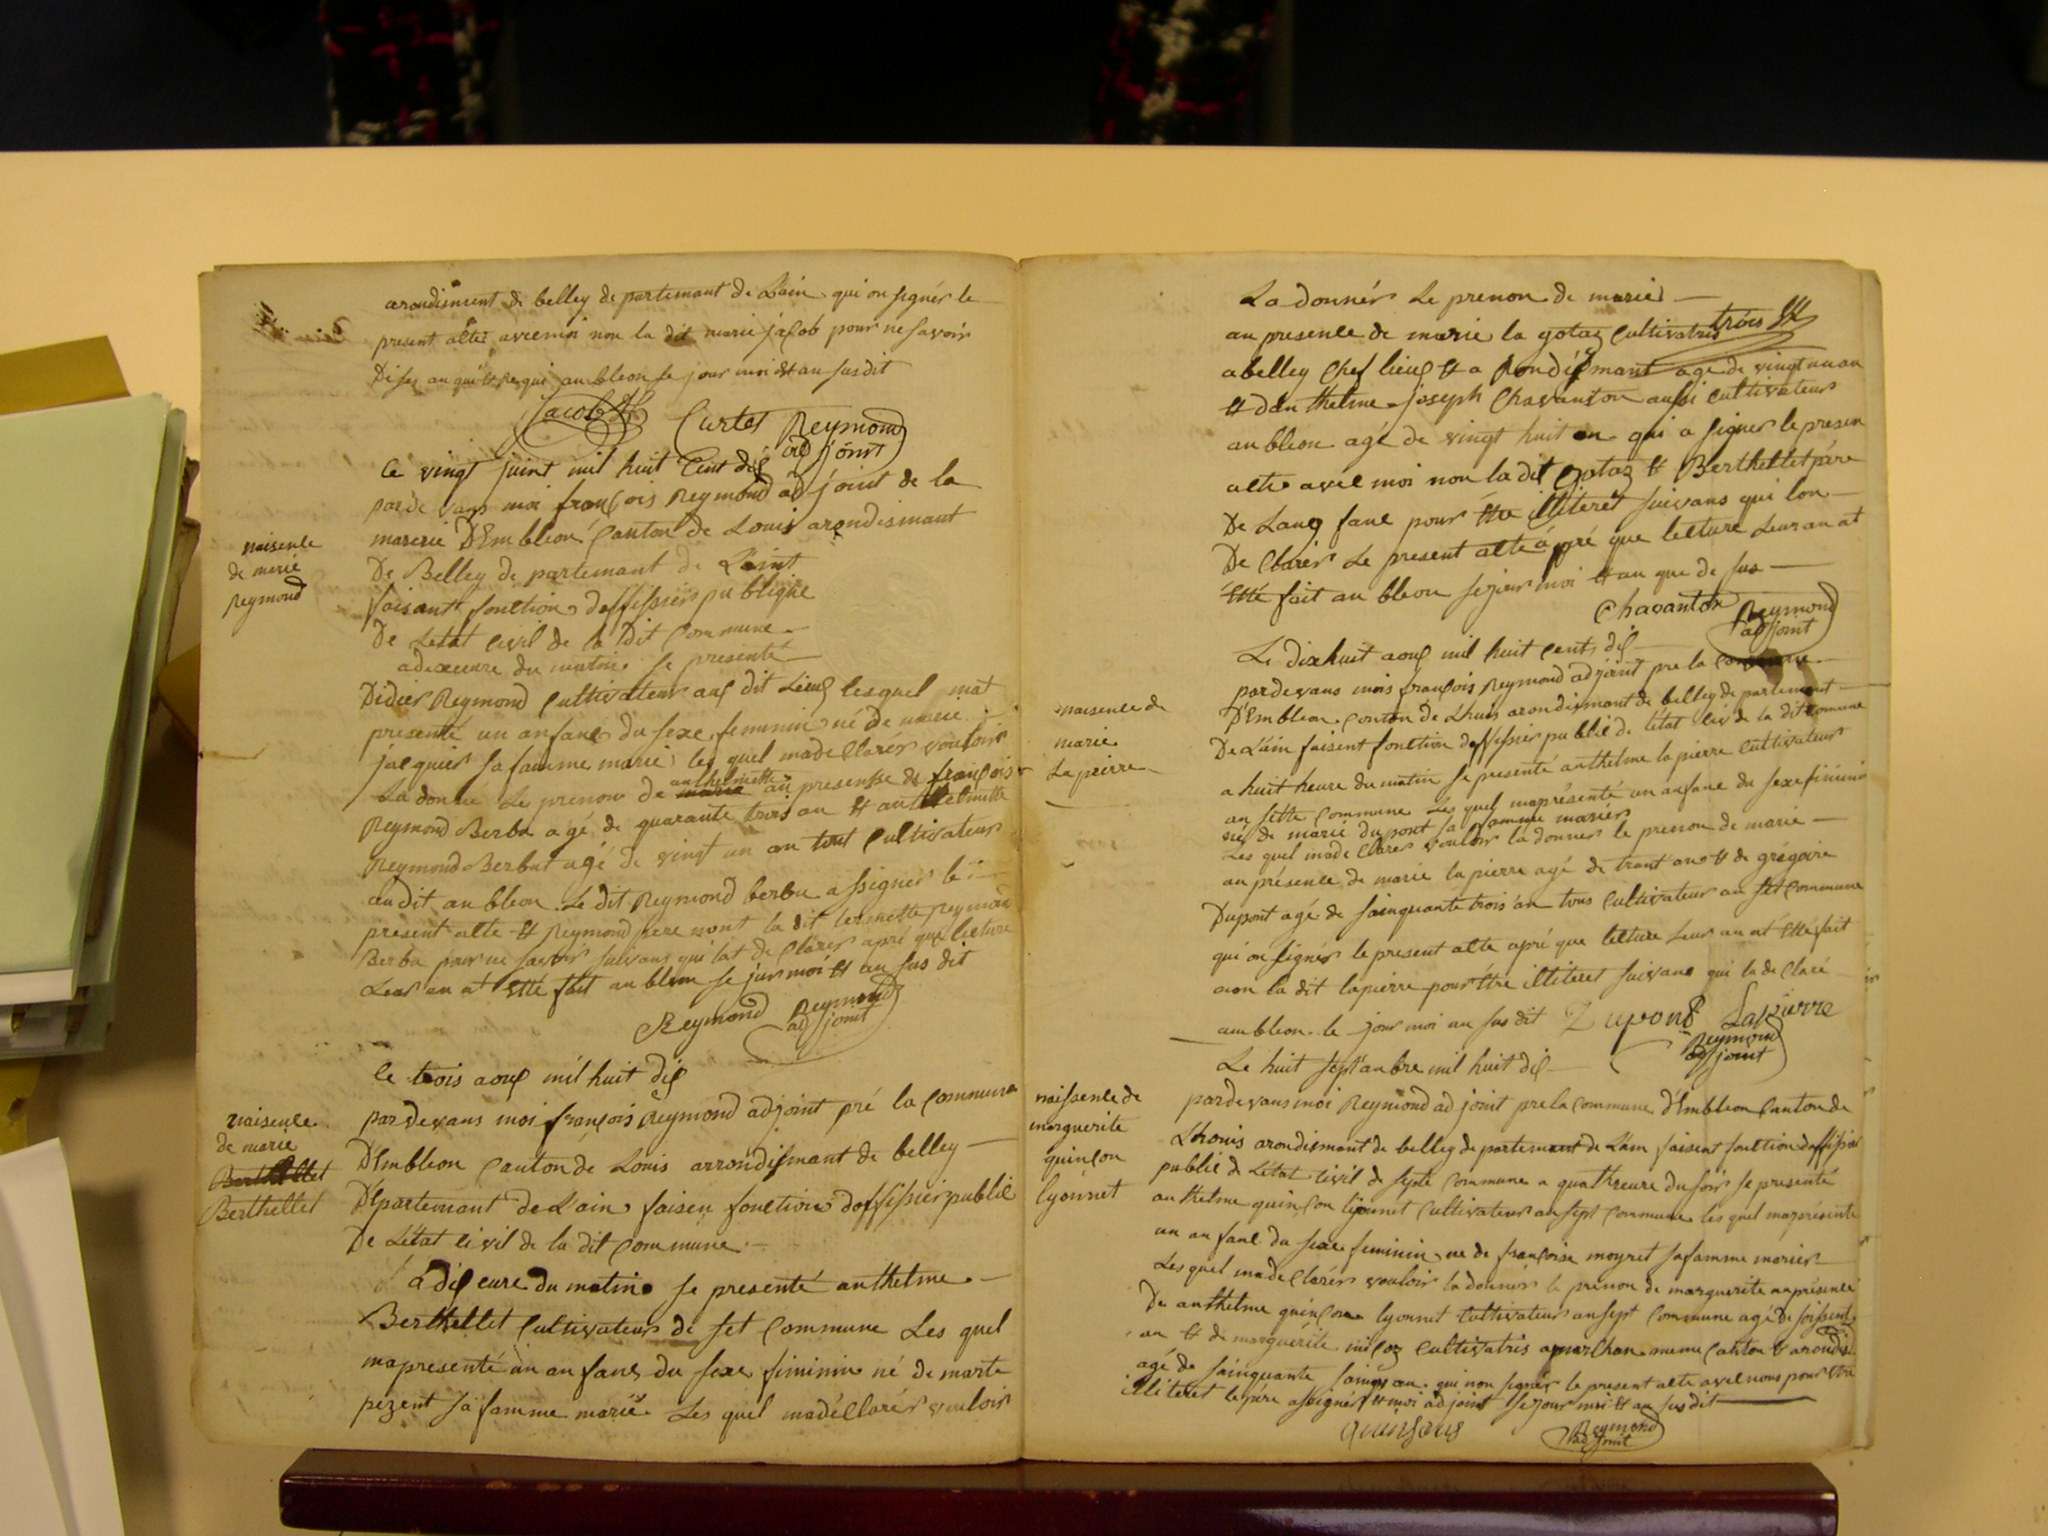 arondisment de belley departemant de Lain qui on signér le
present alte avec moi non la dit marie jacob pour ne savoir
au bleon se jour moi et an susdit
Jacob Curtet Reymond
adjoint
Ce vingt juint mil huit Cent dix
par de vans moi françois Reymond adjoint de la
marerie D'Embleon Canton de Louis arondismant
naisence
de marie
Reymond
De Belley de partemant de L'aint
faisant fonction doffissiers publique
De Letat civil de la Dit Commune
a dixeure du matin se presenté
Didier Reymond Cultivateur aux dit Lieux lesquel mat
presenté un anfant du sexe feminin né de marie
jacquier sa famme marié les quel made Clarér vouloir
La donné Le prenom de marie anthelmette au presensse de françois
Reymond Berba agé de quarante trois an et anthelmette
Reymond Berbat agé de vingt un an tout Cultivateur
audit an bleon Le dit Reymond berba assigner le
present alte et Reymond pere nont la dit lermette Reymond
Berba pour ne savoir suivans qui lat de Clarer apré que lecture
Leur an at etté fait an bleon se jour moi et an sus dit
Reymond Reymond
adjoint
Le trois aoux mil huit dix
naisence
de marie
Berthellet
Berthellet
par devans moi françois Reymond adjoint pré la Commune
D'Embleon Canton de Louis arrondismant de belley
Départemant de Lain faisen fonction doffissier public
De Letat civil de la dit Commune
a dix eure du matin se presenté anthelme
Berthellet Cultivateur de set Commune Les quel
mapresenté un anfans du sexe feminin né de marte
pezent sa famme marié Les quel madéclarér vouloir
La donnér Le prenon de marie
au presence de marie la gotaz Cultivatris trois
a belley Chef lieux et a Rondismant age de vingt un an
et danthelme joseph Chavanton aussi cultivateur
an bleon agé de vingt huit an qui a signer le presen
alte avec moi non la dit gotaz et Berthellet père
De Lanfanc pour etre illiteret suivans qui lon
De Clarer Le present alte apré que lecture Leur an at
etté fait an bleon se jour moi et an que de sus
Chavanton Reymond
adjoint
Le dixhuit aoux mil huit cent dix
par devans mois françois Reymond adjoint pre la Commune
naisence de
marie
La peirre
D'Embleon Conton de Lhuis arondismant de belley de partemant
De L'ain faisent fonction doffissier public de létat civ de la dit Comune
a huit heure du matin se presenté anthelme la pierre Cultivateur
an sette Commune Les quel mapresenté un anfanc du sexe féminin
né de marie dupont sa famme mariér
Les quel made Clarer vouloir la donner le prenon de marie
au présence de marie la pierre agé de trant ans et de grégoire
Dupont agé de sainquante trois an tous Cultivateur an set Commune
qui on signér le present alte apré que lecture Leur an at etté fait
non la dit lapierre pour être illiteret suivans qui la de Claré
ambleon le jour moi an sus dit Dupont Lapierre
Reymond
adjoint
Le huit septanbre mil huit dix
naissence de
marguerite
quinçon
lyonnet
par devans moi Reymond adjoint pre la Commune D'Embleon Canton de
Lhouis arondismant de belley de partemant de Lain faisent fonction doffissié
public de Letat civil de septe Commune a quathreure du soir se presenté
anthelme quinçon lyonnet Cultivateur an sept Commune les quel mapresenté
un anfanc du sexe feminin ne de françoise moyret sa famme mariér
Les quel made Clarér vouloir la donner le prénon de marguerite au présence
De anthelme quinçon lyonnet Cultivateur an sept Commune agé de soissent
an et de marguerite Cultivatris a marchan meme Canton et arondis
agé de sainquante sainq an qui non signér le present alte avec nous pour etre
illiteret le pere assignér et moi adjoint se jour moi et an sus dit
quinsons Reymond
adjoint